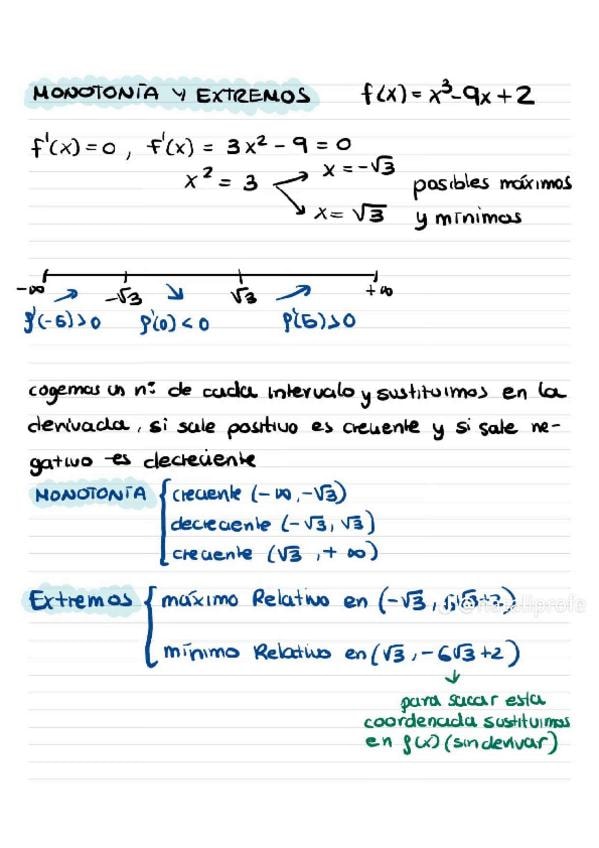 MONOTONÍA Y EXTREMOS f(x) = x³-9x+2
f'(x)=0, f'(x) = 3x² - 9 = 0
x² = 3 x = -√3 posibles máximos
x = √3 y mínimos
-∞ -√3 √3 +∞
f'(-5)>0 f'(0)<0 f'(5)>0
cogemos un nº de cada intervalo y sustituimos en la
derivada, si sale positivo es creciente y si sale ne-
gativo es decreciente
MONOTONÍA { creciente (-∞,-√3)
decreciente (-√3, √3)
creciente (√3, +∞)
Extremos { máximo Relativo en (-√3, √3+2)
mínimo Relativo en (√3, -6√3+2)
para sacar esta
coordenada sustituimos
en f(x) (sin derivar)